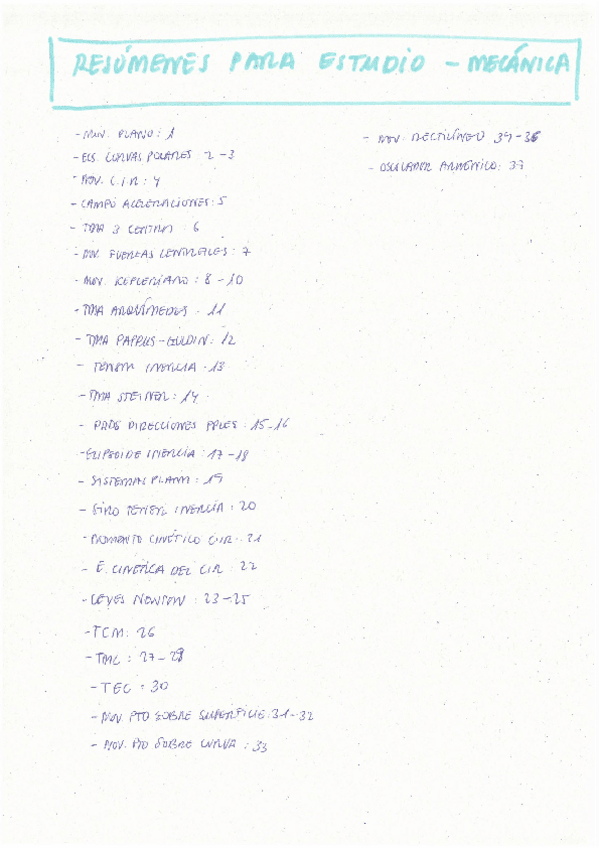 RESÚMENES PARA ESTUDIO - MECÁNICA
- MOV. PLANO: 1
- ECS. CURVAS POLARES 2-3
- MOV. C.I.R: 4
- CAMPO ACELERACIONES: 5
- TMA 3 CENTROS: 6
- MOV. FUERZAS CENTRALES: 7
- MOV. KEPLERIANO: 8-10
- TMA ARQUÍMEDES: 11
- TMA PAPPUS-GULDIN: 12
- TENSOR INERCIA: 13
- TMA STEINER: 14
- DIRECCIONES PPLES: 15-16
- ELIPSOIDE INERCIA: 17-18
- SISTEMAS PLANOS: 19
- GIRO TENSOR INERCIA: 20
- MOMENTO CINÉTICO CIR: 21
- E. CINÉTICA DEL CIR: 22
- LEYES NEWTON: 23-25
- TCM: 26
- TMC: 27-29
- TEC: 30
- MOV. PTO SOBRE SUPERFICIE: 31-32
- MOV. PTO SOBRE CURVA: 33
- MOV. RECTILÍNEO 34-36
- OSCILADOR ARMÓNICO: 37